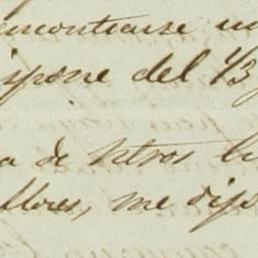 ncontrarse
ispone del 43
a de Vtros
flores, me disp